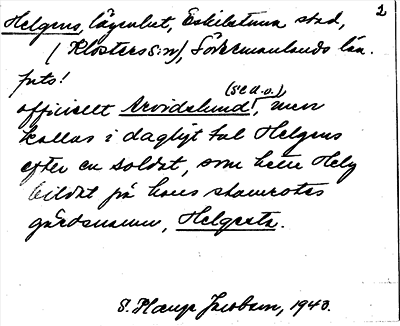 2
Helgens, lägenhet, Eskilstuna stad,
(Klosters sn), Södermanlands län.
puts!
officiellt Arvidslund (se d.o.), men
kallas i dagligt tal Helgens
efter en soldat, som hette Helg
bildat på hans stamrotes
gårdsnamn, Helgesta.
S. Plauge Jacobson, 1940.